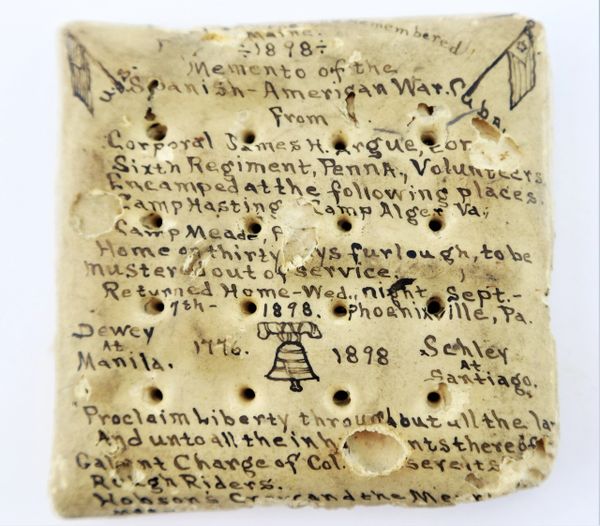 Maine. remembered
÷1898÷
Memento of the
U.S. Spanish-American War. Cuba.
From
Corporal James H. Argue, Co
Sixth Regiment, Penna, Volunteers
Encamped at the following places.
Camp Hasting, Camp Alger Va,
Camp Meade,
Home on thirty days furlough, to be
mustered out of service.
Returned Home-Wed., night Sept.-
7th- 1898. Phoenixville, Pa.
Dewey At Manila. 1776. 1898 Schley At Santiago.
Proclaim Liberty throughout all the la
And unto all the inh nts thereof
Galant Charge of Col.
Rough Riders.
Hobson's Crew and the Me